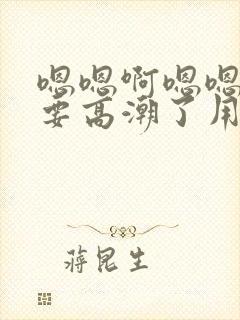 嗯嗯啊嗯嗯
要高潮了用
蒋昆生